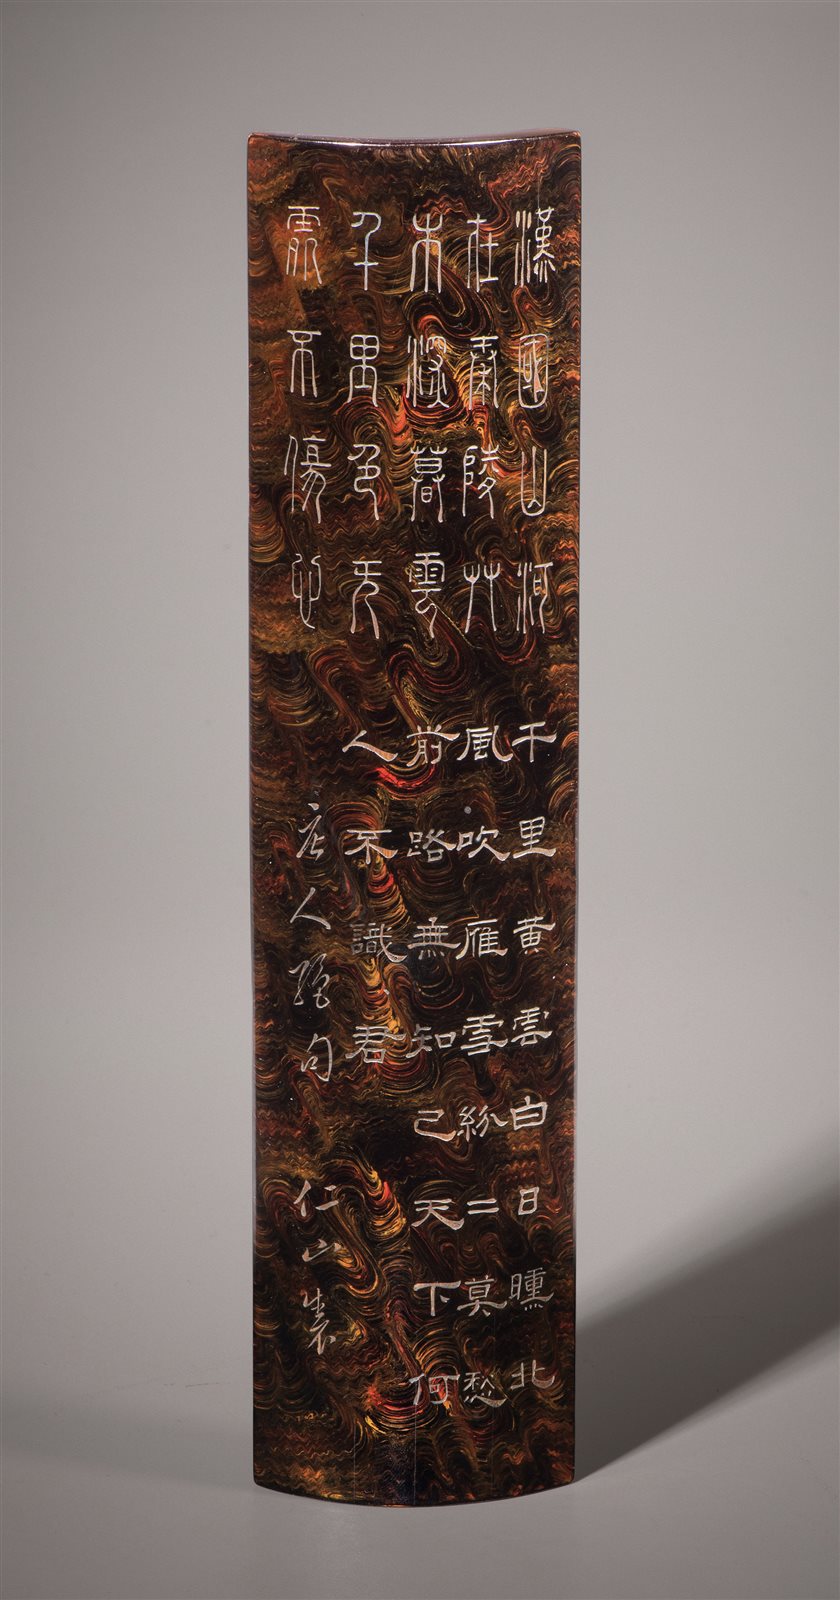 漢國山河
在秦陵艸
木深暮雲
千里色无
處不傷心
千里黃雲白日曛北
風吹雁雪紛二莫愁
前路無知己天下何
人不識君
唐人絕句 仁山製